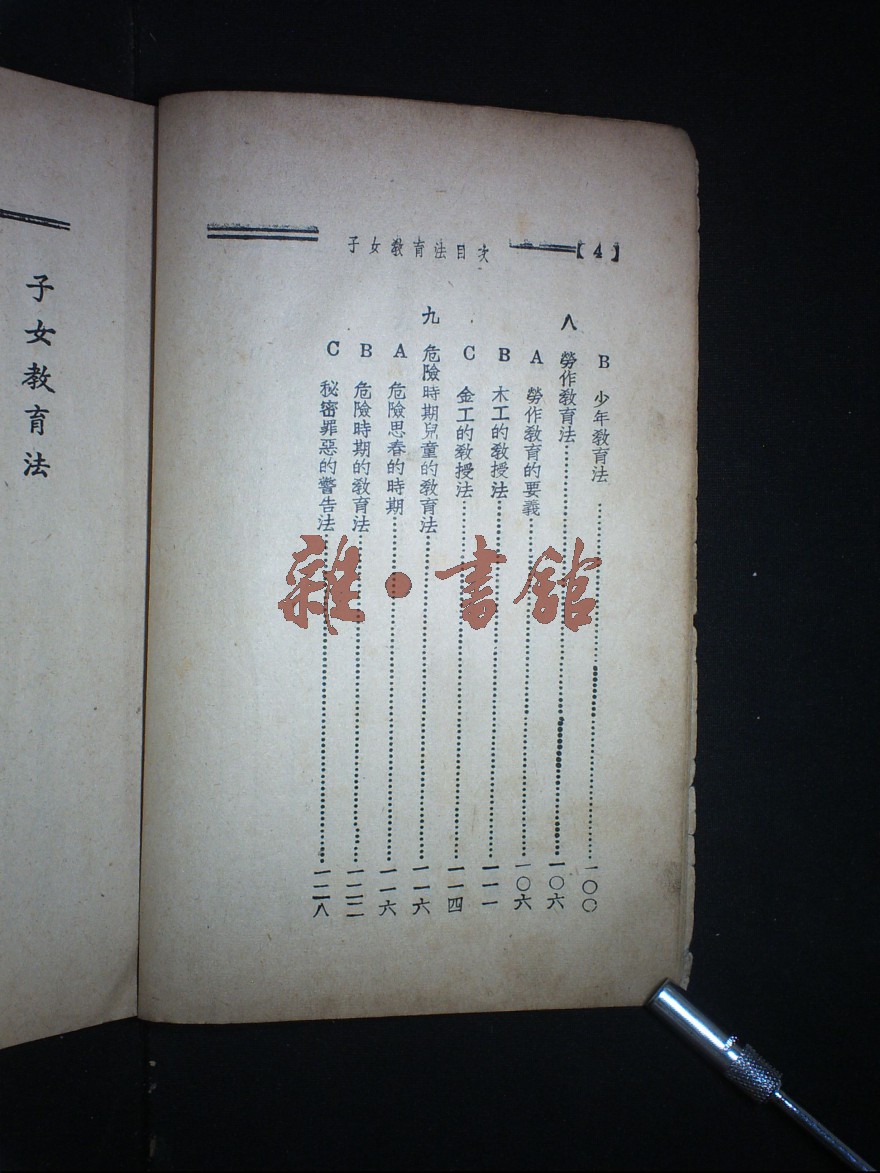 子女教育法目次 【4】
B 少年教育法……一〇〇
八 勞作教育法……一〇六
A 勞作教育的要義……一〇六
B 木工的教授法……一一一
C 金工的教授法……一一四
九 危險時期兒童的教育法……一一六
A 危險思春的時期……一一六
B 危險時期的教育法……一二二
C 秘密罪惡的警告法……一二八
子女教育法
雜·書館